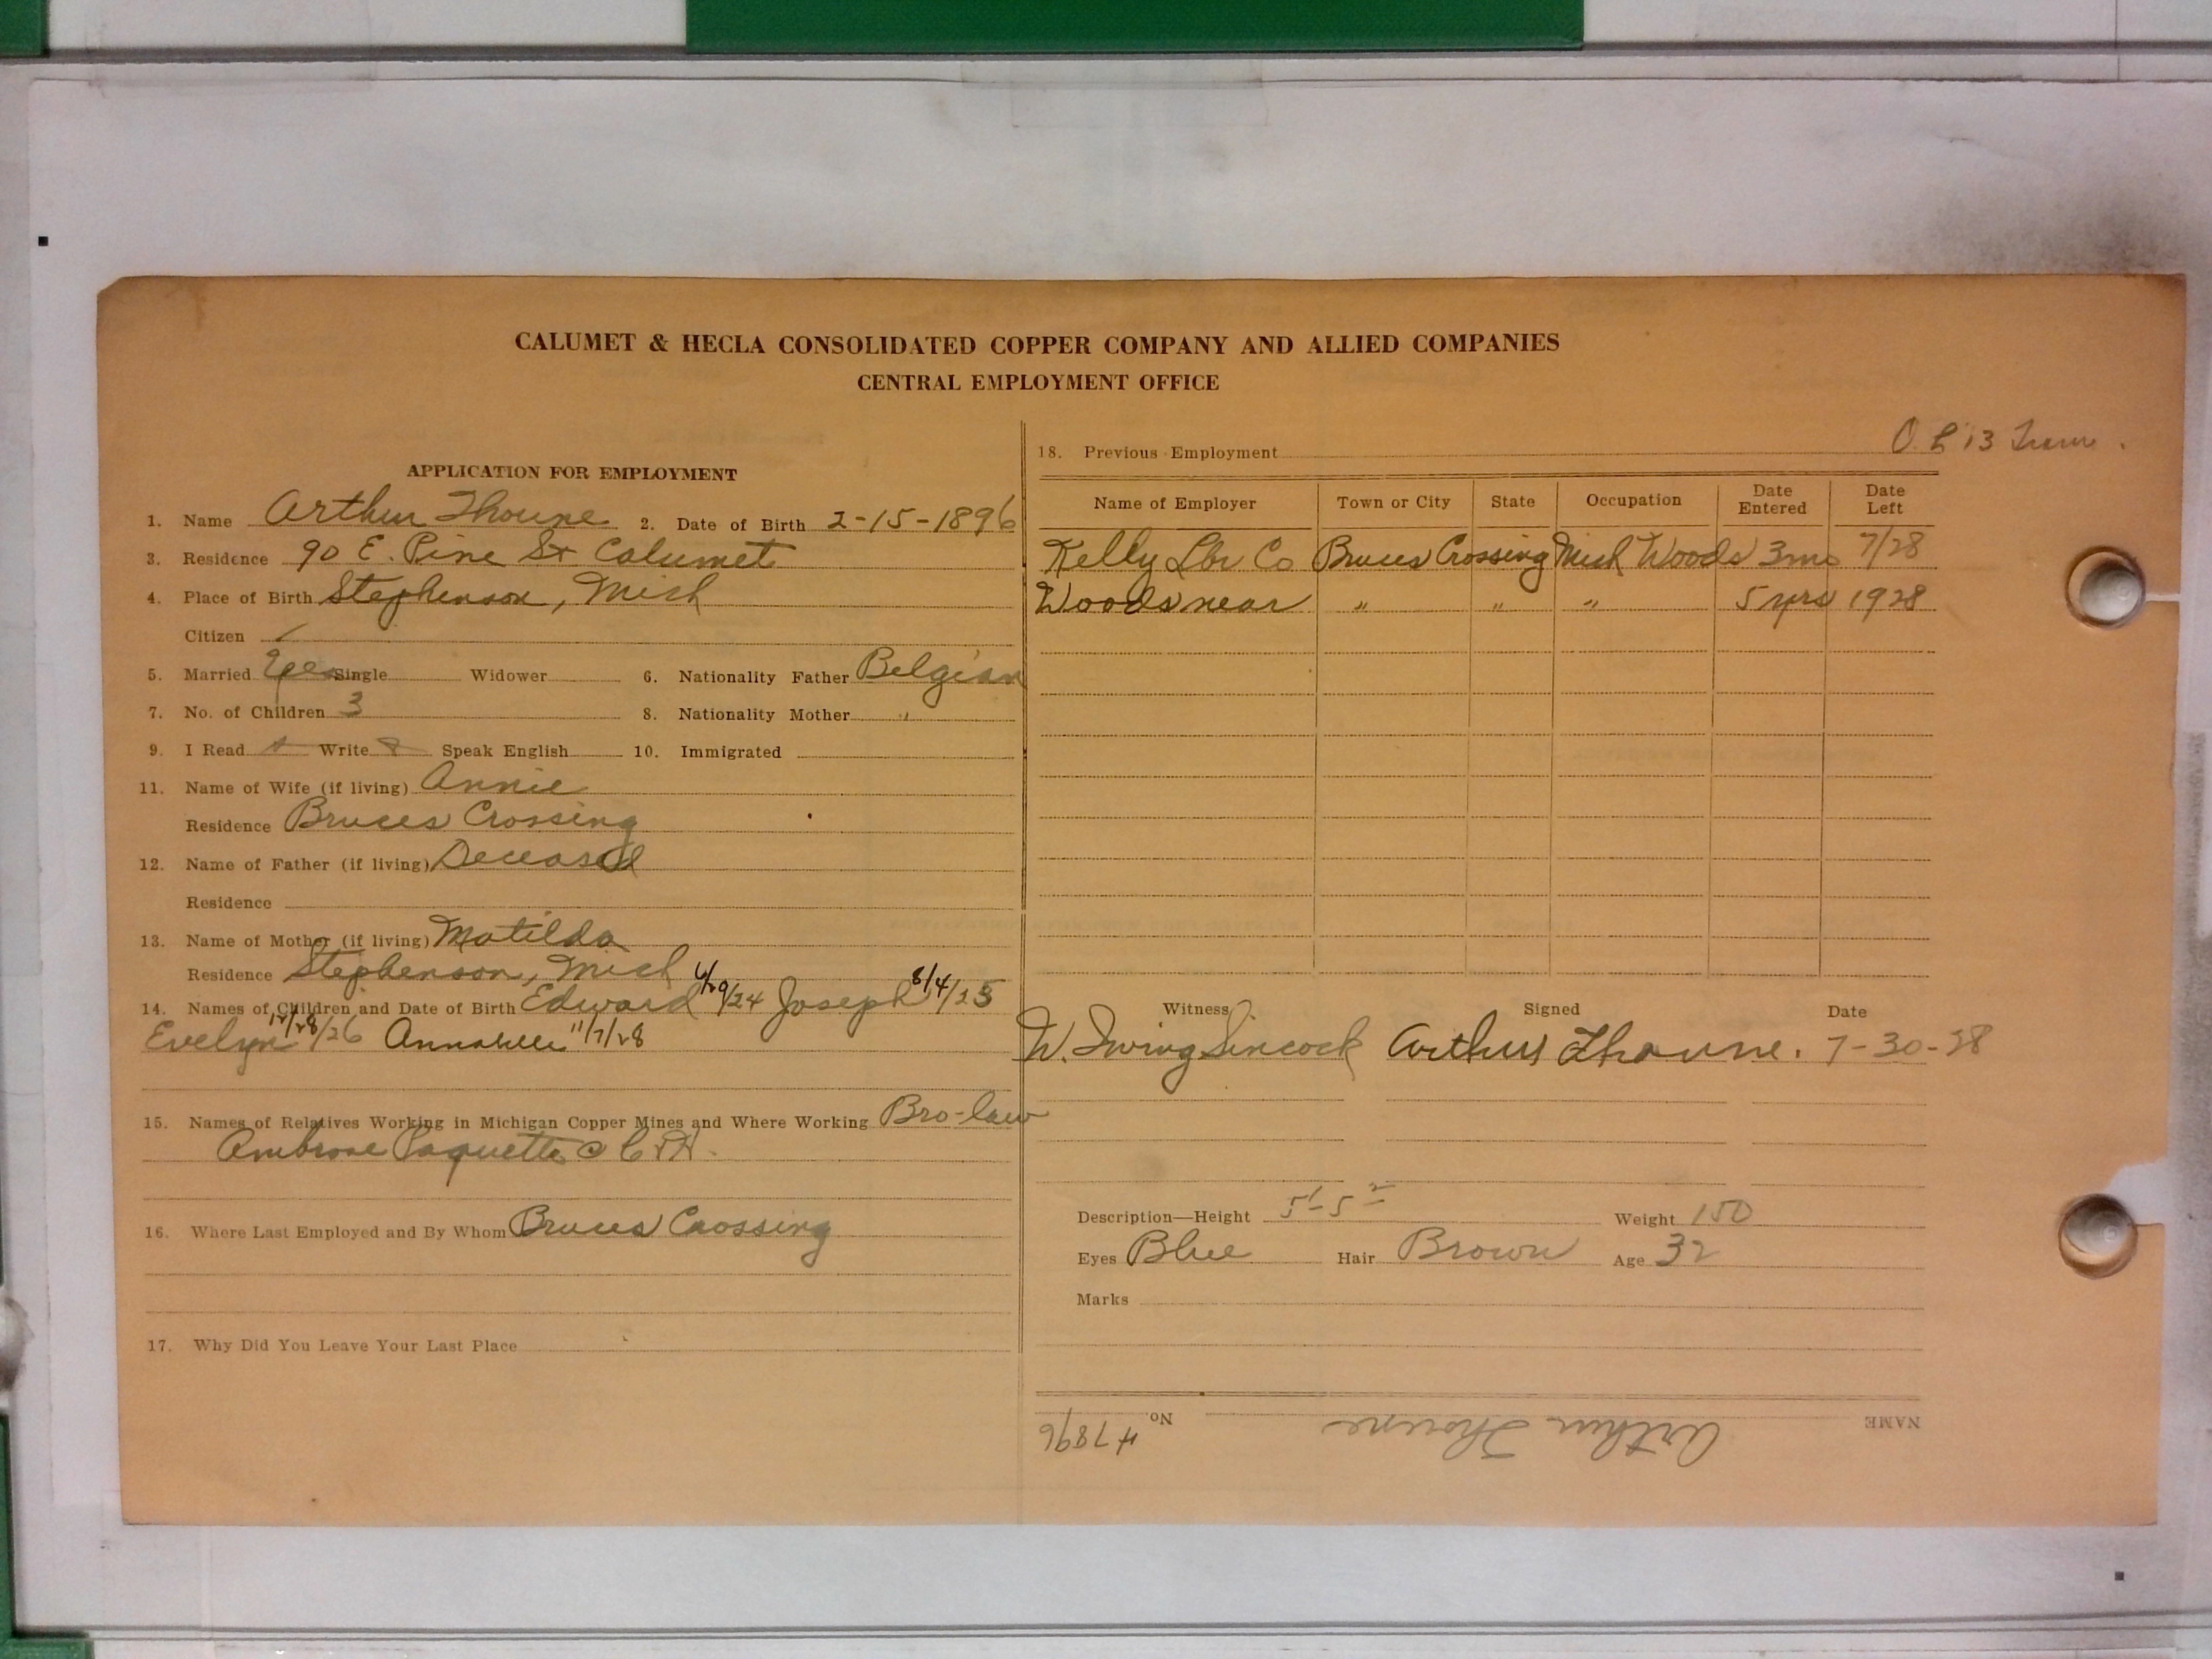 CALUMET & HECLA CONSOLIDATED COPPER COMPANY AND ALLIED COMPANIES
CENTRAL EMPLOYMENT OFFICE
APPLICATION FOR EMPLOYMENT
1. Name Arthur Thoune 2. Date of Birth 2-15-1896
3. Residence 90 E. Pine St Calumet
4. Place of Birth Stephenson, Mich
Citizen
5. Married Yes Single Widower 6. Nationality Father Belgian
7. No. of Children 3 8. Nationality Mother "
9. I Read Write Speak English 10. Immigrated
11. Name of Wife (if living) Annie
Residence Bruces Crossing
12. Name of Father (if living) Deceased
Residence
13. Name of Mother (if living) Matilda
Residence Stephenson, Mich
14. Names of Children and Date of Birth Edward 6/29/24 Joseph 8/4/25
Evelyn 12/28/26 Annabelle 11/7/28
15. Names of Relatives Working in Michigan Copper Mines and Where Working Bro-law
Ambrose Paquette C & H.
16. Where Last Employed and By Whom Bruces Crossing
17. Why Did You Leave Your Last Place
18. Previous Employment 13 Tram.
Name of Employer Town or City State Occupation Date Entered Date Left
Kelly Lbr Co Bruces Crossing Mich Woods 3mo 7/28
Woods near " " " 5 yrs 1928
Witness Signed Date
W. Irving Sincock Arthur Thoune. 7-30-28
Description—Height 5'-5" Weight 150
Eyes Blue Hair Brown Age 32
Marks
NAME Arthur Thoune No. 47896